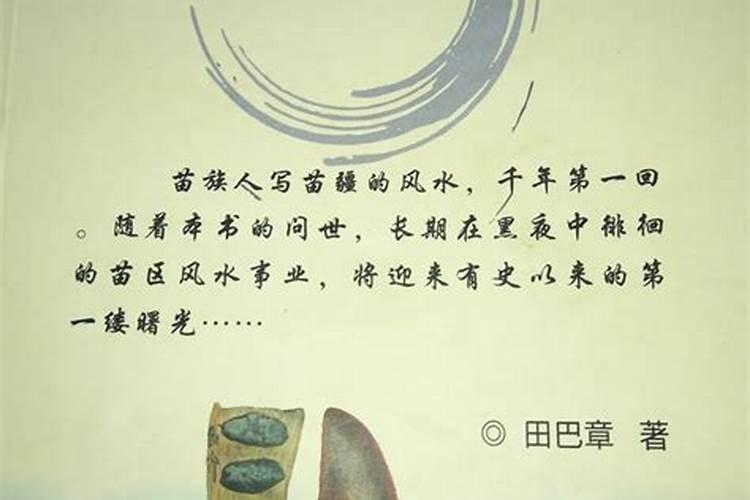 苗族人写苗疆的风水，千年第一回
。随着本书的问世，长期在黑夜中徘徊
的苗区风水事业，将迎来有史以来的第
一缕曙光……
◎ 田巴章 著